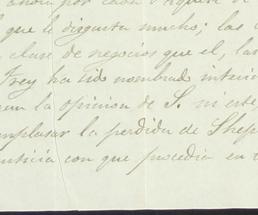 ahora por
que le disgusta mucho; las
clase de negocios que el, las
Frey ha sido nombrado interin
la opinion de S. ni este
emplazar la perdida de Shep
justicia con que procedia en